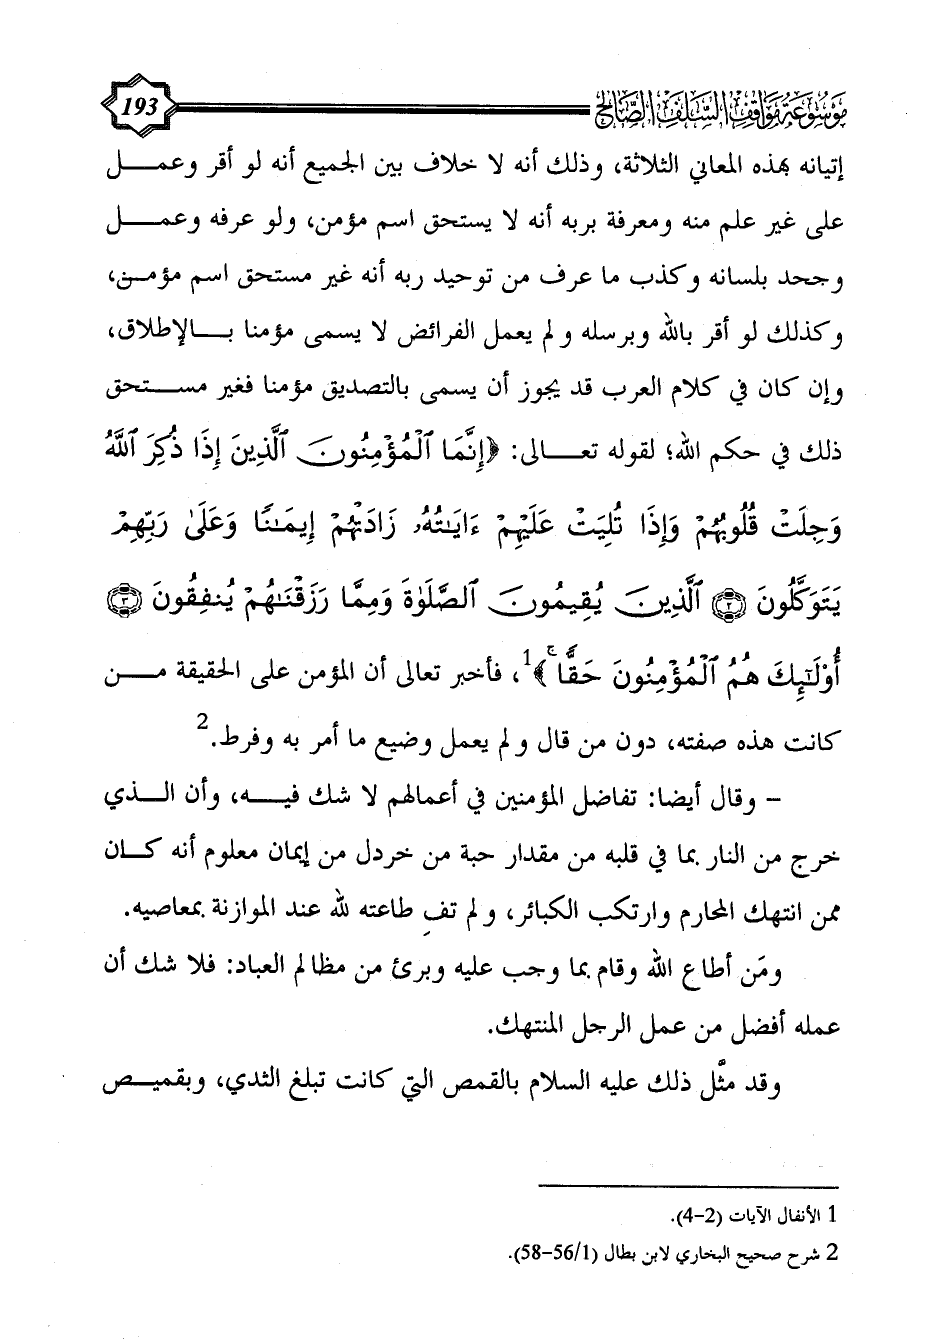 موسوعة مواقف السلف الصالح
193
إتيانه بهذه المعاني الثلاثة، وذلك أنه لا خلاف بين الجميع أنه لو أقر وعمل
على غير علم منه ومعرفة بربه أنه لا يستحق اسم مؤمن، ولو عرفه وعمل
وجحد بلسانه وكذب ما عرف من توحيد ربه أنه غير مستحق اسم مؤمن،
وكذلك لو أقر بالله وبرسله ولم يعمل الفرائض لا يسمى مؤمنا بالإطلاق،
وإن كان في كلام العرب قد يجوز أن يسمى بالتصديق مؤمنا فغير مستحق
ذلك في حكم الله؛ لقوله تعالى: ﴿إِنَّمَا ٱلْمُؤْمِنُونَ ٱلَّذِينَ إِذَا ذُكِرَ ٱللَّهُ
وَجِلَتْ قُلُوبُهُمْ وَإِذَا تُلِيَتْ عَلَيْهِمْ ءَايَٰتُهُۥ زَادَتْهُمْ إِيمَٰنًا وَعَلَىٰ رَبِّهِمْ
يَتَوَكَّلُونَ ٢ ٱلَّذِينَ يُقِيمُونَ ٱلصَّلَوٰةَ وَمِمَّا رَزَقْنَٰهُمْ يُنفِقُونَ ٣
أُوْلَٰٓئِكَ هُمُ ٱلْمُؤْمِنُونَ حَقًّا ۚ﴾1، فأخبر تعالى أن المؤمن على الحقيقة من
كانت هذه صفته، دون من قال ولم يعمل وضيع ما أمر به وفرط.2
- وقال أيضا: تفاضل المؤمنين في أعمالهم لا شك فيه، وأن الذي
خرج من النار بما في قلبه من مقدار حبة من خردل من إيمان معلوم أنه كان
ممن انتهك المحارم وارتكب الكبائر، ولم تفِ طاعته لله عند الموازنة بمعاصيه.
ومَن أطاع الله وقام بما وجب عليه وبرئ من مظالم العباد: فلا شك أن
عمله أفضل من عمل الرجل المنتهك.
وقد مثَّل ذلك عليه السلام بالقمص التي كانت تبلغ الثدي، وبقميص
1 الأنفال الآيات (2-4).
2 شرح صحيح البخاري لابن بطال (56/1-58).